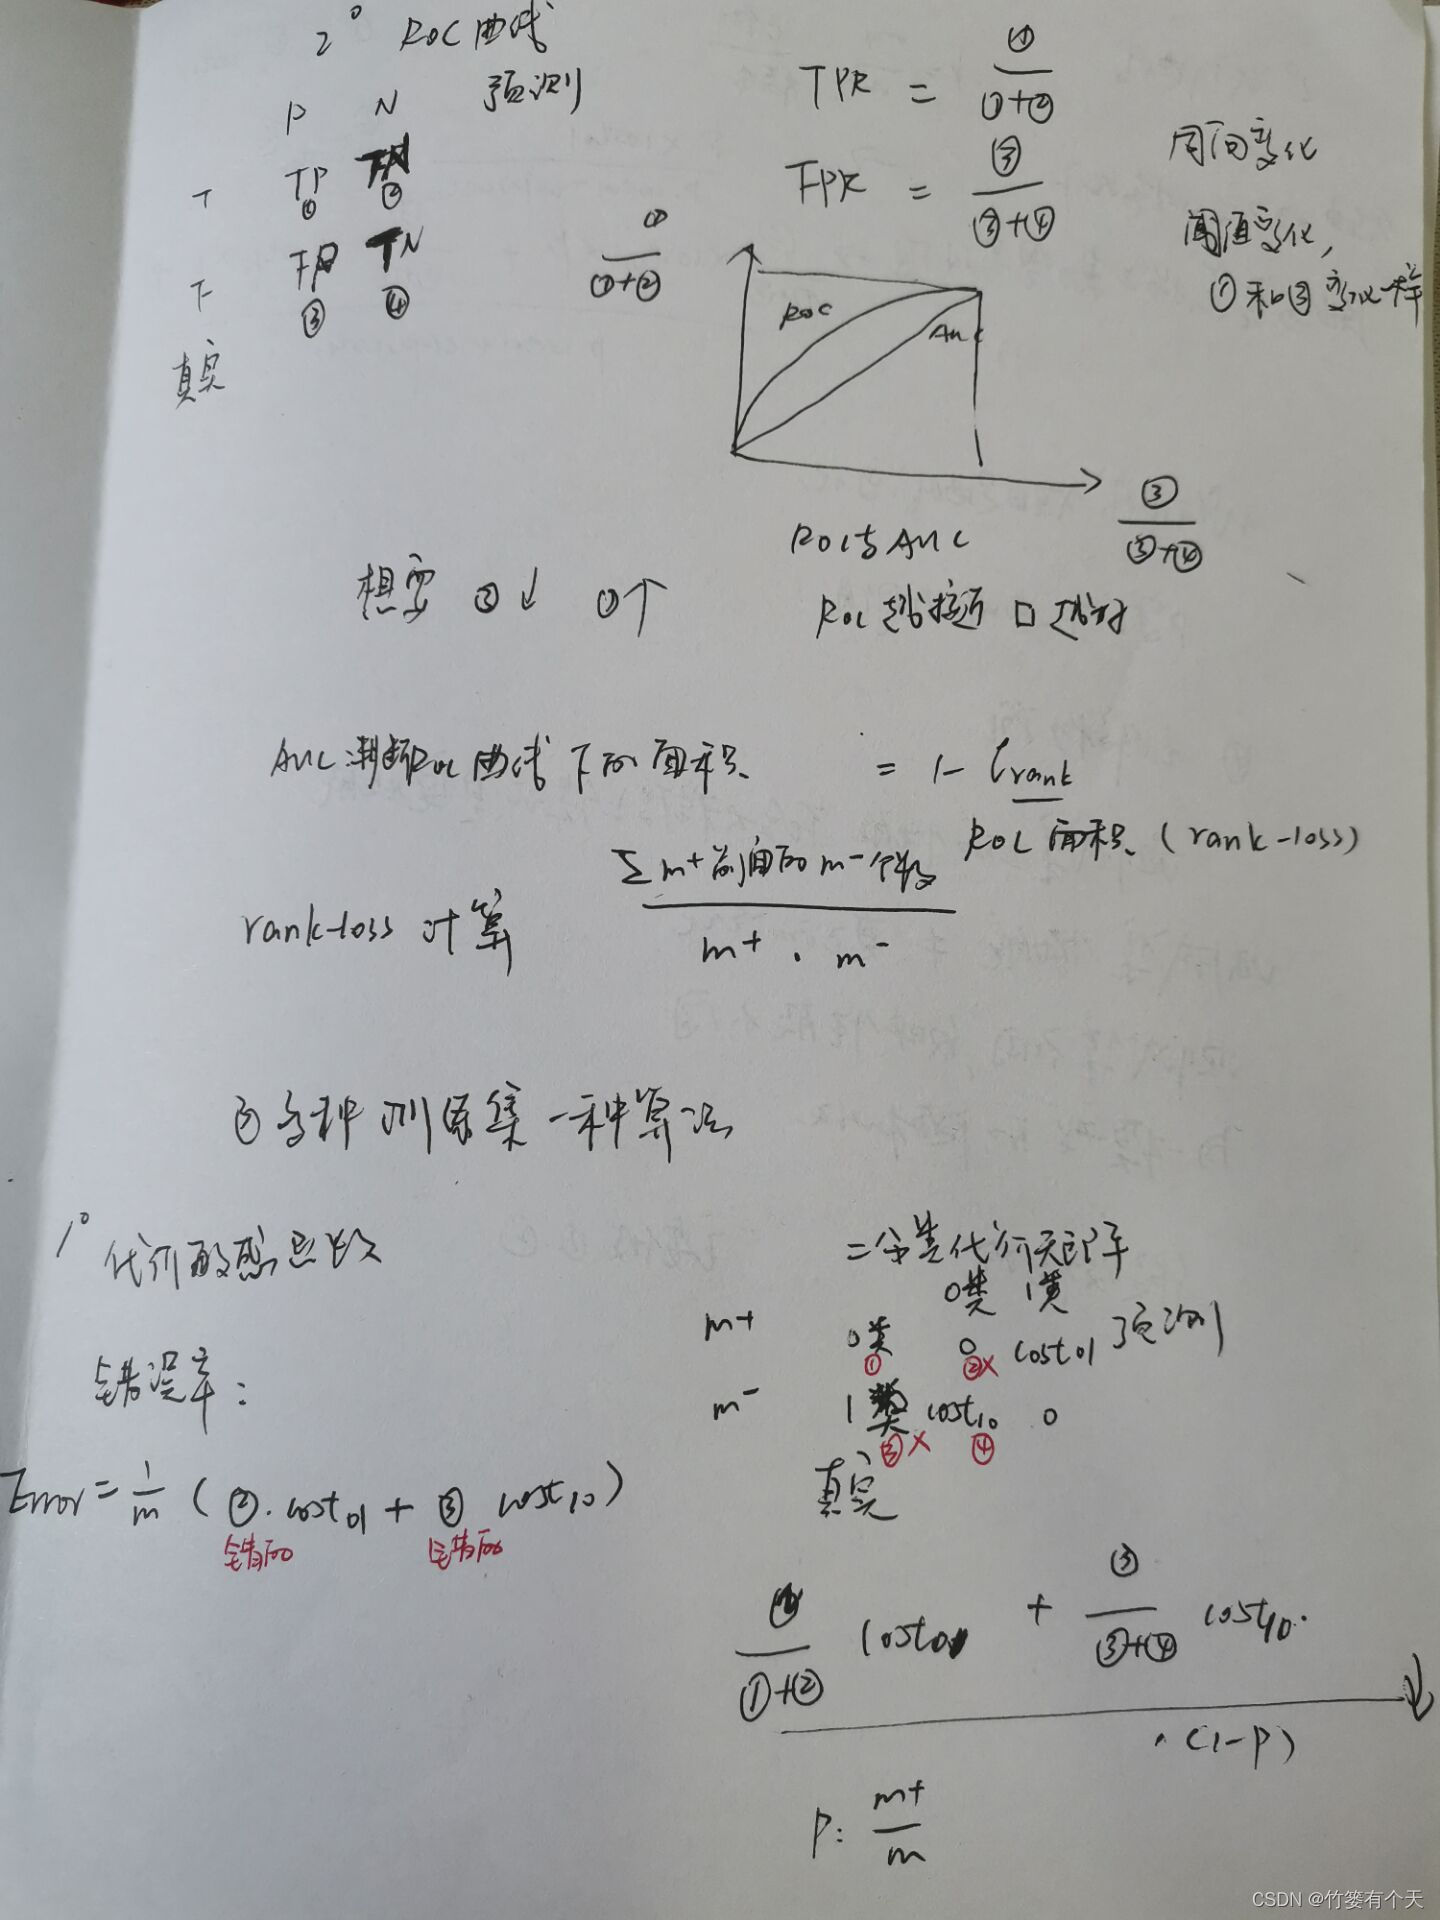 2° ROC曲线
预测
P N
T TP FN
① ②
F FP TN
③ ④
真实
TPR = ① / ①+②
FPR = ③ / ③+④
同向变化
阈值变化,
①和③变化一样
① / ①+②
ROC
AUC
③ / ③+④
ROC与AUC
想要 ③↓ ①↑
ROC越接近□越好
AUC判断ROC曲线下的面积 = 1 - ℓrank
ROC面积 (rank-loss)
rank-loss 计算 Σm+前面的m-个数 / m+ · m-
③多种训练集一种算法
1° 代价敏感
二分类代价矩阵
0类 1类
m+ 0类 0 cost01 预测
① ②×
m- 1类 cost10 0
③× ④
真实
错误率:
Error = 1/m (②·cost01 + ③ cost10)
错的 错的
② / ①+② cost01 + ③ / ③+④ cost10
·(1-P)
P: m+ / m
CSDN @竹篓有个天